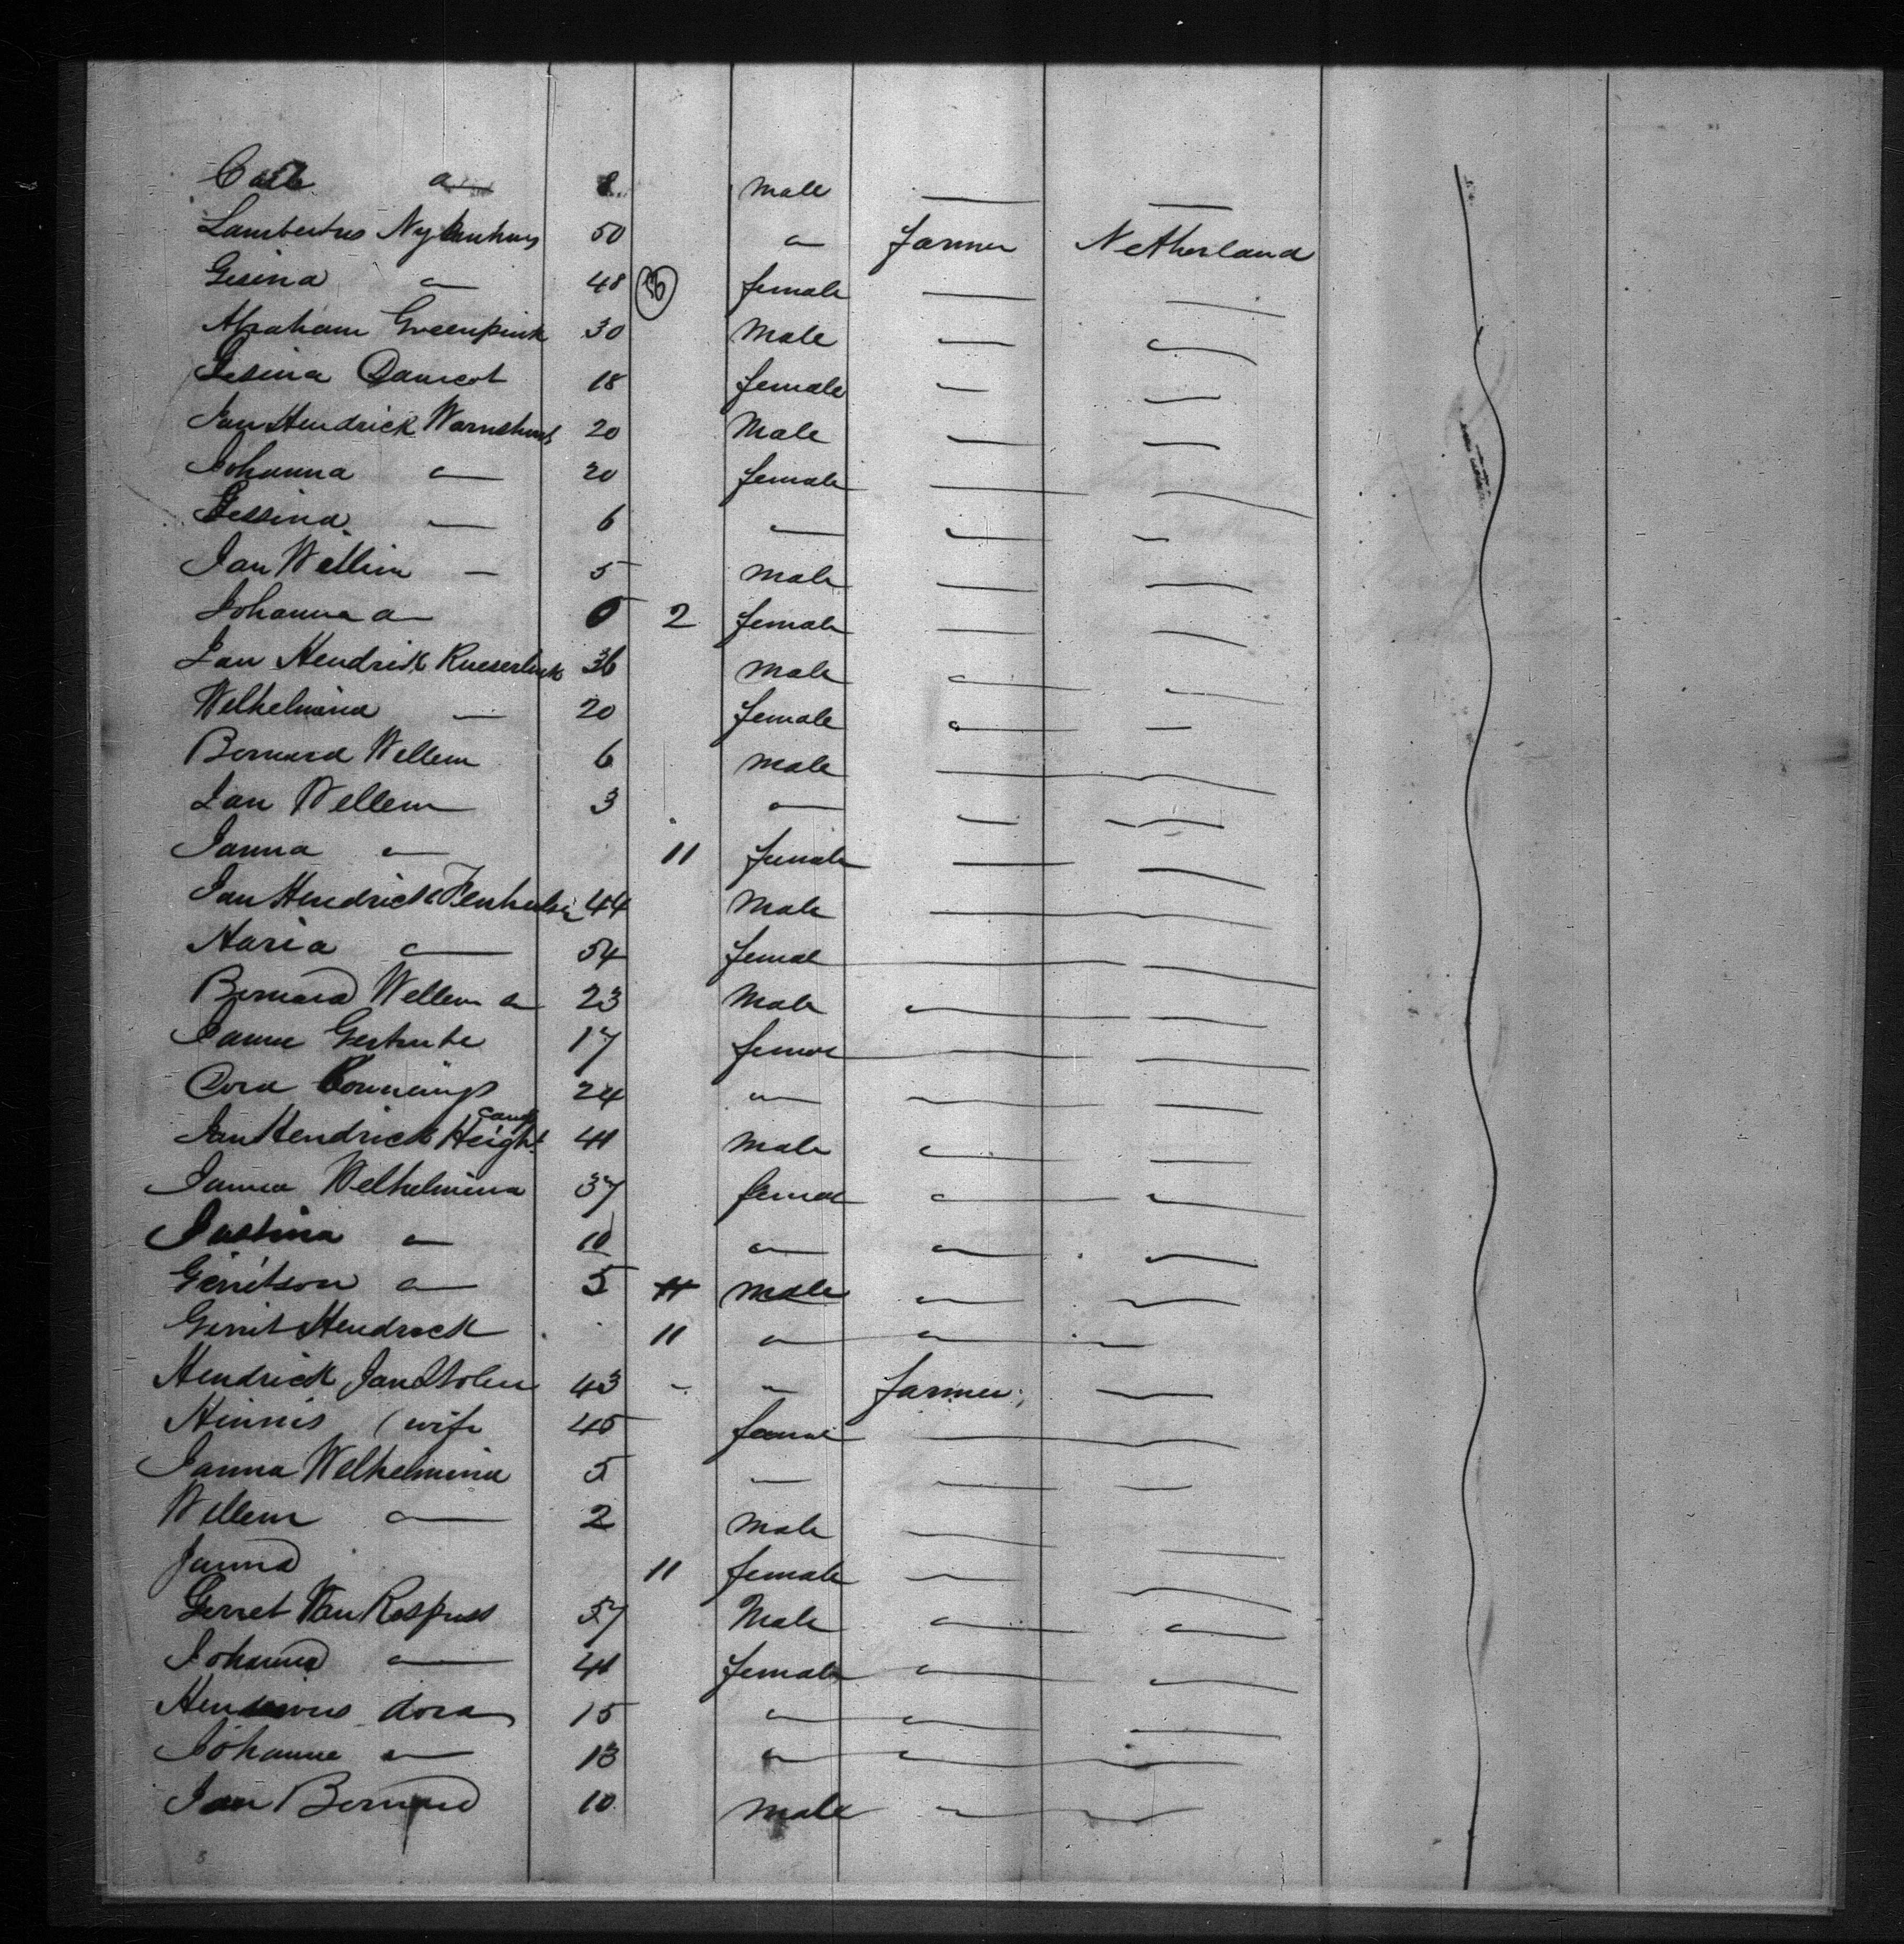 Carl " 8 male — —
Lambertus Nyhenhuis 50 " farmer Netherland
Gesina " 48 female — —
Abraham Greenpink 30 Male — "
Gesina Damcot 18 female — —
Jan Hendrick Warnshuis 20 Male — —
Johanna " 20 female — —
Gessina — 6 — — —
Jan Wellim — 5 male — —
Johanna " 0 2 female — —
Jan Hendrik Rueserlink 36 male " —
Welhelmina — 20 female " —
Bernard Wellem 6 male — —
Jan Wellem 3 " — —
Janna " 11 female — —
Jan Hendrick Tenhulsen 44 Male — —
Maria " 54 femal — —
Bernard Wellem " 23 Male " —
Janne Gertrude 17 femal — —
Dora 24 " " —
Jan Hendrick Height 41 male " —
Janna Welhelmina 37 femal " "
Justina " 10 " " —
Gerritson " 5 male " —
Gerrit Hendrick 11 " " —
Hendrick Jan Stolen 43 " " farmer —
Hinnis (wife 45 femal — —
Janna Welhelmina 5 — — —
Willem " 2 male — —
Janna 11 female — —
Gerret Van 57 Male " "
Johanna " 41 female " "
dora 15 " " —
Johanne " 13 " " —
Jan Bernard 10 male " —